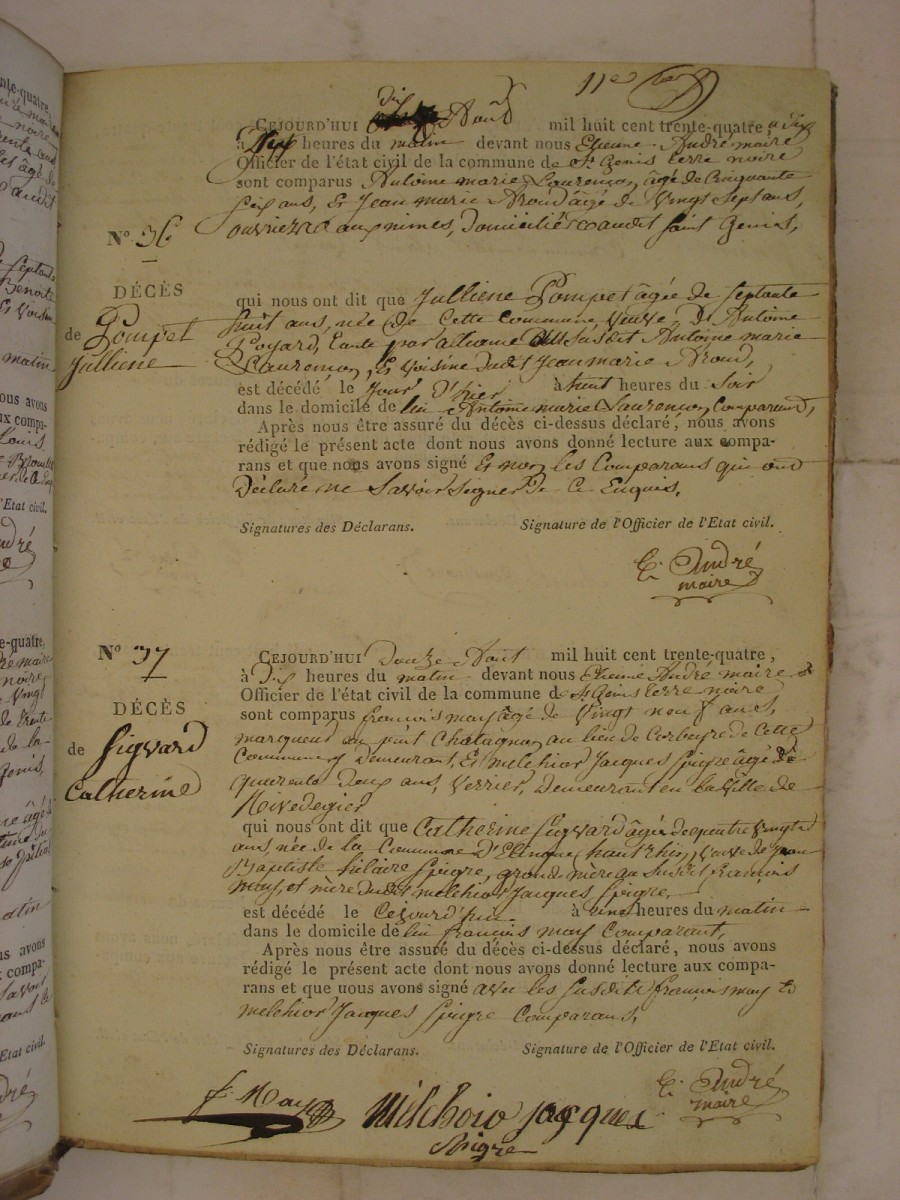 11e
dix
CEJOURD'HUI Aout mil huit cent trente-quatre, a dix
à Dix heures du matin devant nous Etienne André maire
Officier de l'état civil de la commune de St Genis terre noire
sont comparus Antoine marie Laurençon, âgé de Cinquante
six ans, Et Jean marie Aroud âgé de Vingt Sept ans,
ouvriers aux mines, Domiciliés audit Saint Genis,
N° 36
DÉCÈS
de Pompet
Julliene
qui nous ont dit que Julliene Pompet âgée de Septante
huit ans, née de Cette Commune, Veuve D'Antoine
Poyard, tante par alliance Susdit Antoine marie
Laurençon, Et Voisine dudit Jean marie Aroud,
est décédé le Jour D'hier à huit heures du Soir
dans le domicile de lui Antoine marie Laurençon, Comparant,
Après nous être assuré du décès ci-dessus déclaré, nous avons
rédigé le présent acte dont nous avons donné lecture aux compa-
rans et que nous avons signé Et non les Comparans qui ont
Déclaré ne Savoir Signer De Ce Enquis.
Signatures des Déclarans. Signature de l'Officier de l'Etat civil.
E. André
maire
N° 37
DÉCÈS
de Sigvard
Catherine
CEJOURD'HUI Douze Aout mil huit cent trente-quatre,
à Dix heures du matin devant nous Etienne André maire &
Officier de l'état civil de la commune de St Genis terre noire
sont comparus françois may âgé de Vingt neuf ans,
marqueur au puit Chatagnon au lieu de Corbeyre de Cette
Commune y Demeurant, Et melchior Jacques Spigre âgé de
quarente Deux ans, Verrier, Demeurant en la Ville de
Rivedegier
qui nous ont dit que Catherine Sigvard âgée de quatre Vingts
ans née de la Commune D' (haut rhin), Veuve de jean
Baptiste hilaire Spigre, grand mère au Susdit françois
may, et mère dudit melchior Jacques Spigre
est décédé le Cejourd'hui à cinq heures du matin
dans le domicile de lui françois may Comparant,
Après nous être assuré du décès ci-dessus déclaré, nous avons
rédigé le présent acte dont nous avons donné lecture aux compa-
rans et que uous avons signé avec les Susdits françois may et
melchior Jacques Spigre Comparans,
Signatures des Déclarans. Signature de l'Officier de l'Etat civil.
f. May
Mélchoio jacques
Spigre
E. André
maire